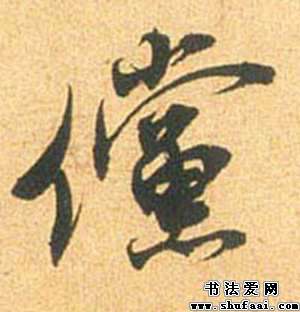 儻
书法爱网
www.shufaai.com